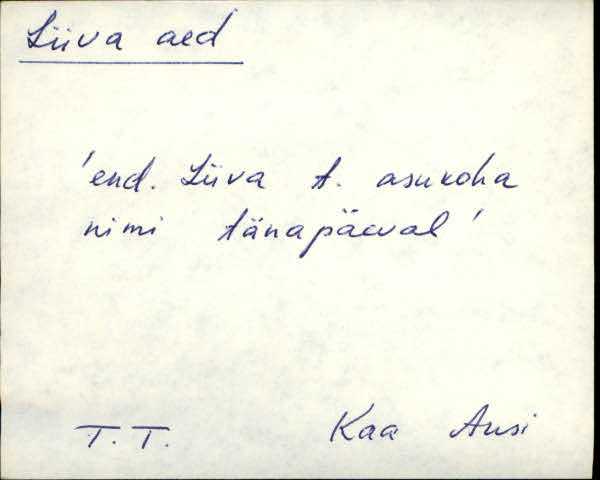 Liiva aed
'end. Liiva t. asukoha
nimi tänapäeval'
T. T. Kaa Ansi